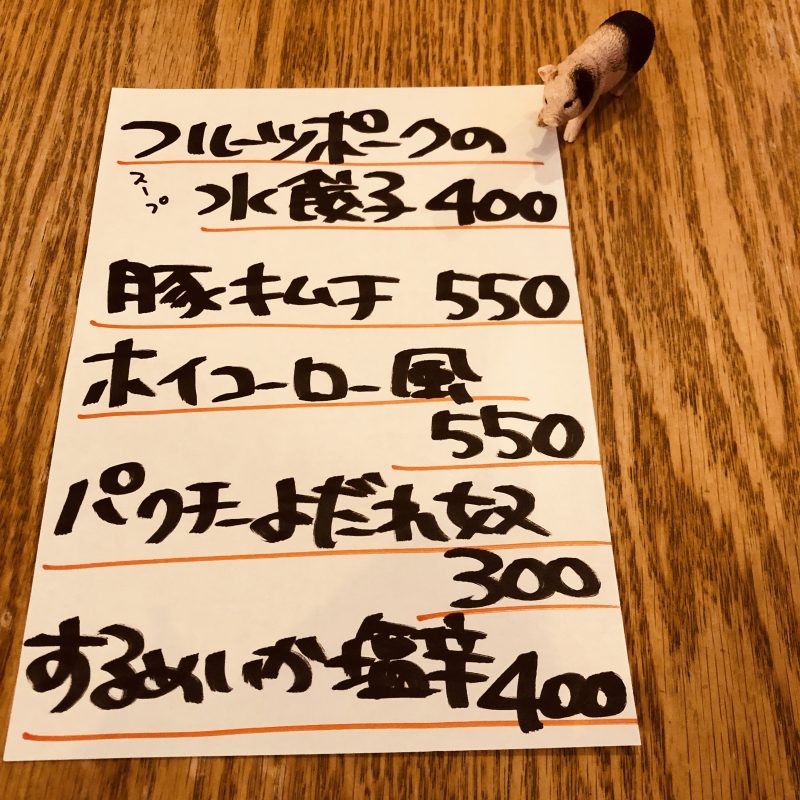 フルーツポークの
スープ 水餃子 400
豚キムチ 550
ホイコーロー風
550
パクチーよだれ奴
300
するめいか塩辛 400